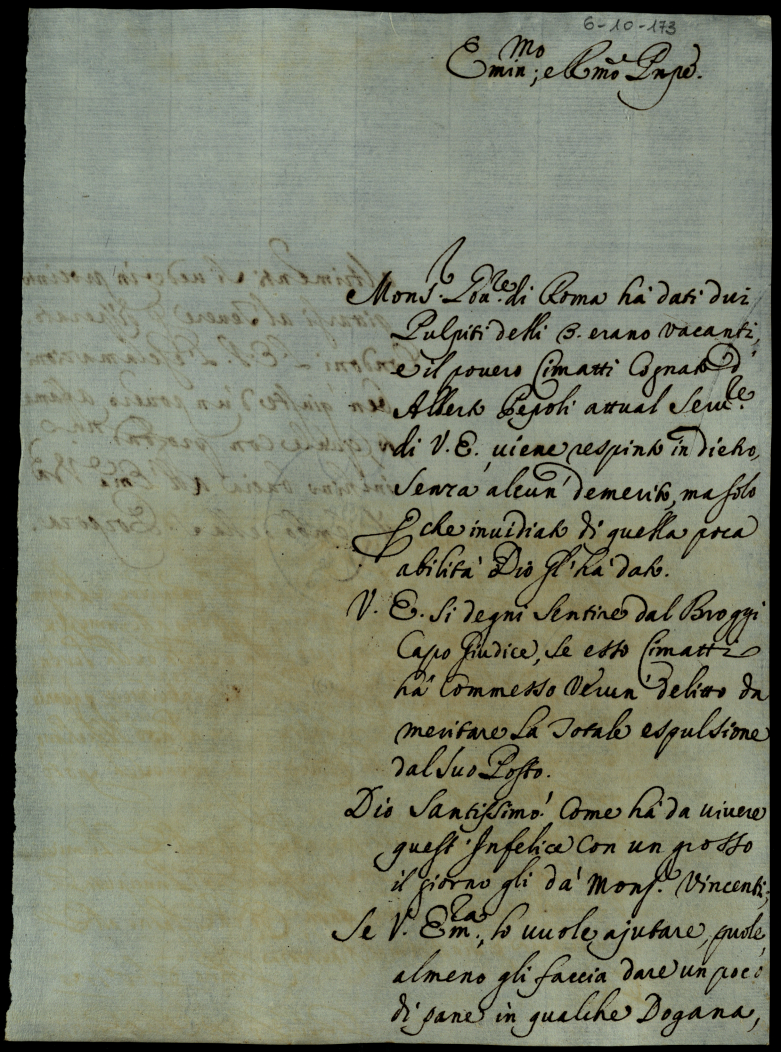 6-10-173
Emin.mo; e Rmo Pnpe.
Mons. Gov.re di Roma hà dati dui
Pulpiti delli 3. erano vacanti,
e il povero Cimatti Cognato d'
Alberto Pepoli attual Serv.re
di V. E. viene respinto in dietro,
Senza alcun' demerito, ma solo
Perche invidiato di quella poca
abilità Dio gl'hà dato.
V. E. Si degni Sentire dal Broggi
Capo Giudice, Se esso Cimatti
hà Commesso Verun' delitto da
meritare La Totale espulsione
dal Suo Posto.
Dio Santissimo! Come hà da vivere
quest'Infelice Con un grosso
il giorno gli dà Mons.r Vincenti;
Se V. Em.za lo vuole ajutare, puole,
almeno gli faccia dare un poco
di pane in qualche Dogana,